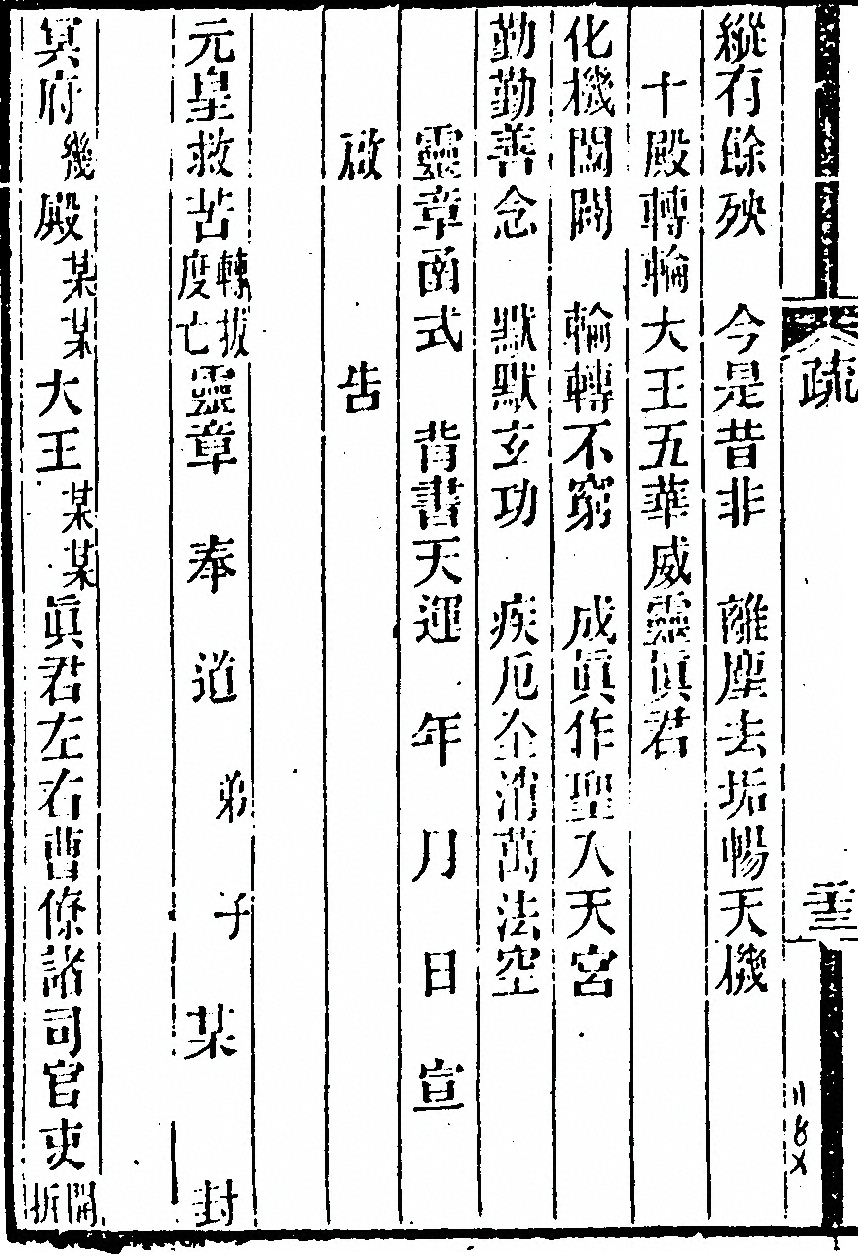 疏
二十三
縱有餘殃　今是昔非　離塵去垢暢天機
十殿轉輪大王五華威靈眞君
化機闔闢　輪轉不窮　成眞作聖入天宮
勤勤善念　默默玄功　疾厄全消萬法空
靈章函式　背書天運　年　月　日　宣
啟　　　告
元皇救苦轉拔度亡靈章　奉　道　弟　子　某　封
冥府幾殿某某大王某某眞君左右曹僚諸司官吏開折
1184